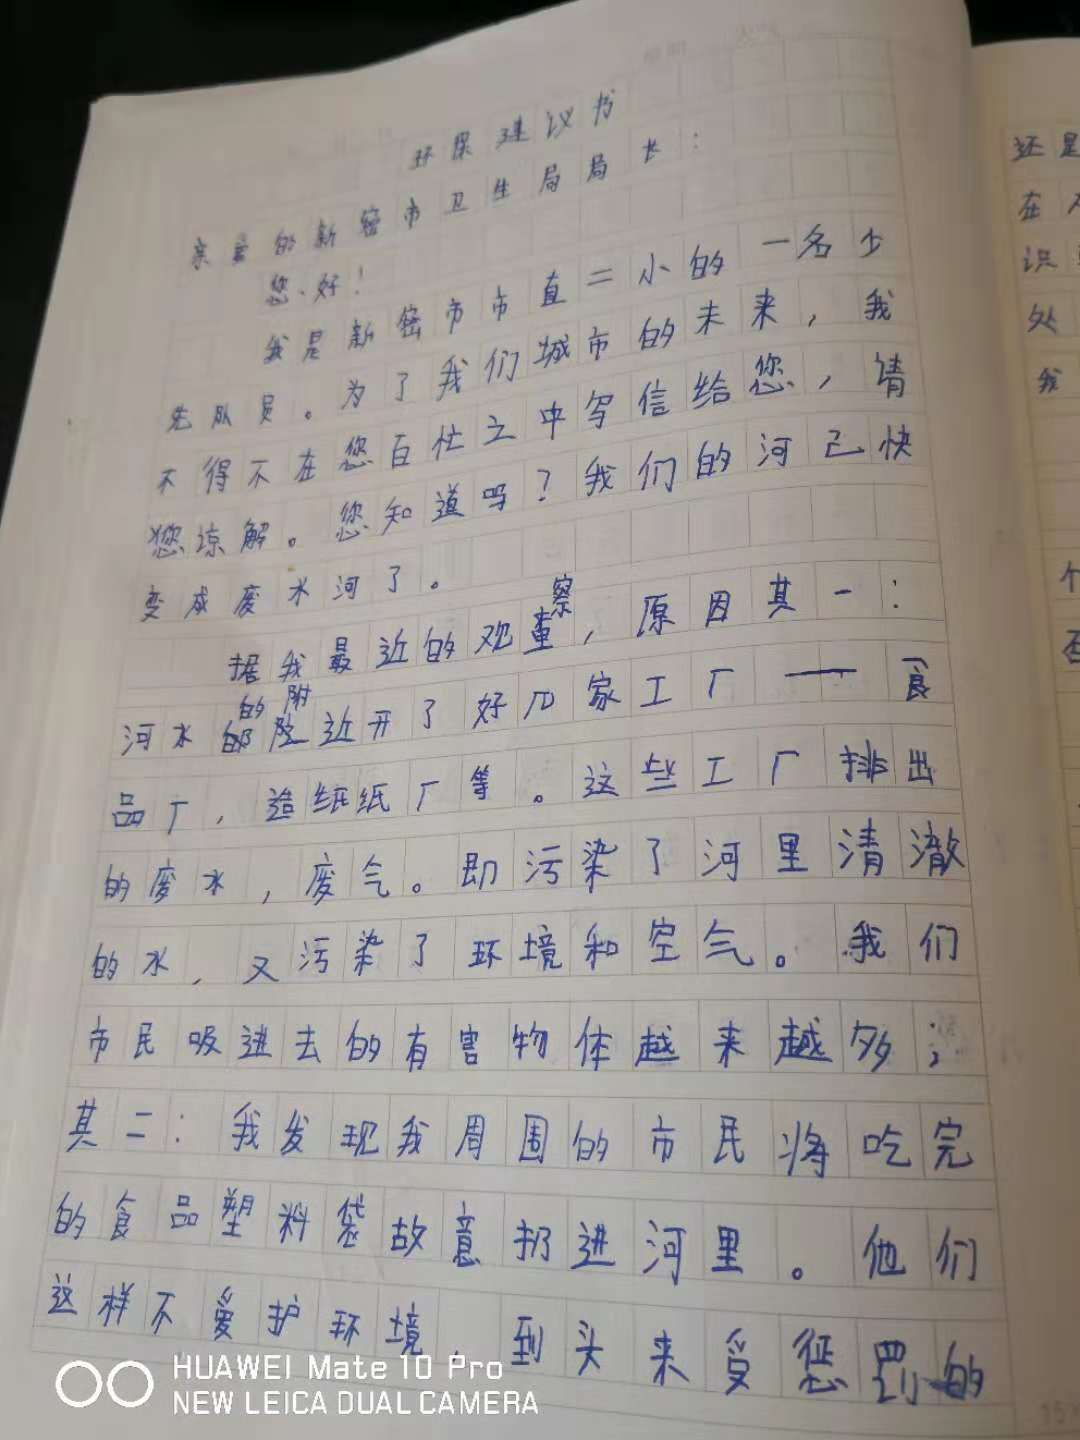 环保建议书
亲爱的新密市卫生局局长：
您好！
我是新密市市直二小的一名少
先队员。为了我们城市的未来，我
不得不在您百忙之中写信给您，请
您谅解。您知道吗？我们的河已快
变成废水河了。
据我最近的观察，原因其一：
河水的附近开了好几家工厂——食
品厂，造纸纸厂等。这些工厂排出
的废水，废气。即污染了河里清澈
的水，又污染了环境和空气。我们
市民吸进去的有害物体越来越多；
其二：我发现我周围的市民将吃完
的食品塑料袋故意扔进河里。他们
这样不爱护环境，到头来受惩罚的
还是
在
识
处
我
个
否
HUAWEI Mate 10 Pro
NEW LEICA DUAL CAMERA